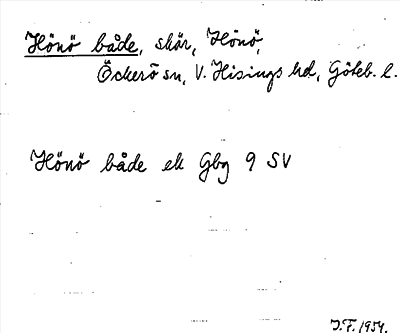 Hönö både, skär, Hönö,
Öckerö sn, V. Hisings hd, Göteb. l.
Hönö både ek Gbg 9 SV
J.F. 1954.